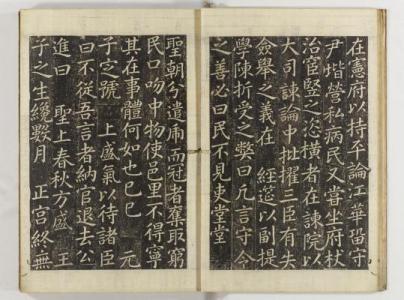 在憲府以持平論江華留守
尹堦營私病民又嘗坐府杖
治宦竪之恣橫者在諫院以
大司諫論中批擢三臣有失
僉擧之義在 經筵以副提
學陳折受之獘曰凡言守令
之善必曰民不見吏堂堂
聖朝兮遣甫而冠者奪取窮
民口吻中物使邑里不得寧
其在事體何如也己巳 元
子定號 上盛氣以待諸臣
曰不從吾言者納官退去公
進曰 聖上春秋方盛 王
子之生纔數月 正宮終無